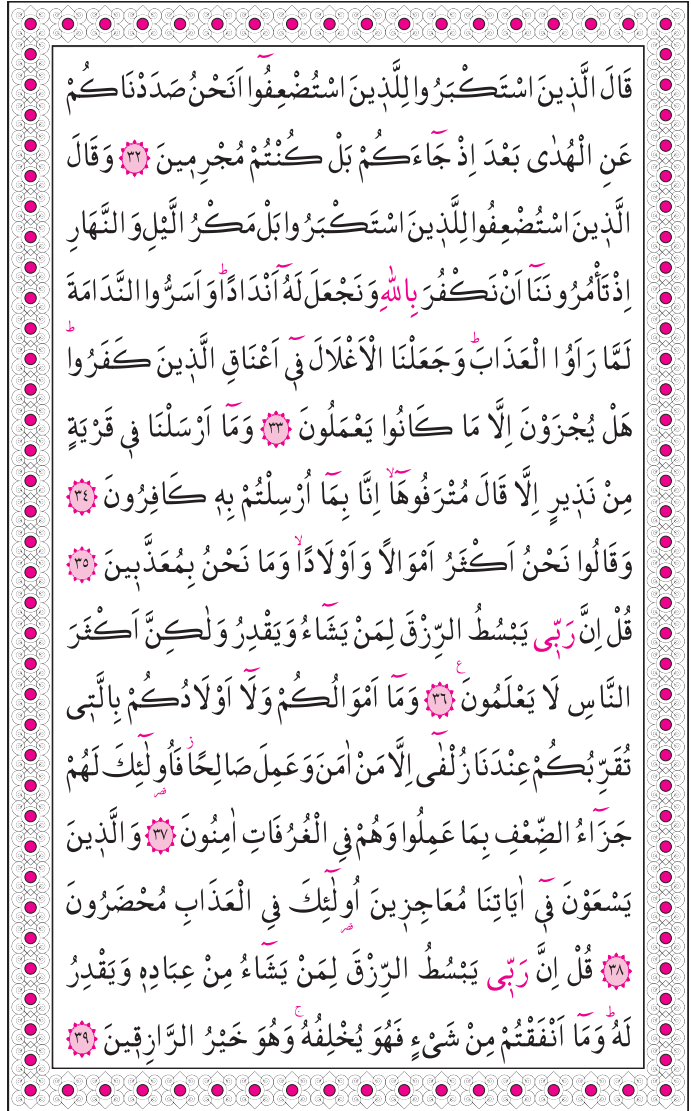 قَالَ الَّذ۪ينَ اسْتَكْبَرُوا لِلَّذ۪ينَ اسْتُضْعِفُٓوا اَنَحْنُ صَدَدْنَاكُمْ
عَنِ الْهُدٰى بَعْدَ اِذْ جَٓاءَكُمْ بَلْ كُنْتُمْ مُجْرِم۪ينَ ﴿٣٢﴾ وَقَالَ
الَّذ۪ينَ اسْتُضْعِفُوا لِلَّذ۪ينَ اسْتَكْبَرُوا بَلْ مَكْرُ الَّيْلِ وَالنَّهَارِ
اِذْ تَأْمُرُونَـنَٓا اَنْ نَكْفُرَ بِاللّٰهِ وَنَجْعَلَ لَهُٓ اَنْدَادًاۜ وَاَسَرُّوا النَّدَامَةَ
لَمَّا رَاَوُا الْعَذَابَۜ وَجَعَلْنَا الْاَغْلَالَ ف۪ٓي اَعْنَاقِ الَّذ۪ينَ كَفَرُواۜ
هَلْ يُجْزَوْنَ اِلَّا مَا كَانُوا يَعْمَلُونَ ﴿٣٣﴾ وَمَٓا اَرْسَلْنَا ف۪ي قَرْيَةٍ
مِنْ نَذ۪يرٍ اِلَّا قَالَ مُتْرَفُوهَٓاۙ اِنَّا بِمَٓا اُرْسِلْتُمْ بِه۪ كَافِرُونَ ﴿٣٤﴾
وَقَالُوا نَحْنُ اَكْثَرُ اَمْوَالًا وَاَوْلَادًاۙ وَمَا نَحْنُ بِمُعَذَّب۪ينَ ﴿٣٥﴾
قُلْ اِنَّ رَبّ۪ي يَبْسُطُ الرِّزْقَ لِمَنْ يَشَٓاءُ وَيَقْدِرُ وَلٰكِنَّ اَكْثَرَ
النَّاسِ لَا يَعْلَمُونَ۟ ﴿٣٦﴾ وَمَٓا اَمْوَالُكُمْ وَلَٓا اَوْلَادُكُمْ بِالَّت۪ي
تُقَرِّبُكُمْ عِنْدَنَا زُلْفٰٓى اِلَّا مَنْ اٰمَنَ وَعَمِلَ صَالِحًاۘ فَاُو۬لٰٓئِكَ لَهُمْ
جَزَٓاءُ الضِّعْفِ بِمَا عَمِلُوا وَهُمْ فِي الْغُرُفَاتِ اٰمِنُونَ ﴿٣٧﴾ وَالَّذ۪ينَ
يَسْعَوْنَ ف۪ٓي اٰيَاتِنَا مُعَاجِز۪ينَ اُو۬لٰٓئِكَ فِي الْعَذَابِ مُحْضَرُونَ
﴿٣٨﴾ قُلْ اِنَّ رَبّ۪ي يَبْسُطُ الرِّزْقَ لِمَنْ يَشَٓاءُ مِنْ عِبَادِه۪ وَيَقْدِرُ
لَهُۜ وَمَٓا اَنْفَقْتُمْ مِنْ شَيْءٍ فَهُوَ يُخْلِفُهُۚ وَهُوَ خَيْرُ الرَّازِق۪ينَ ﴿٣٩﴾